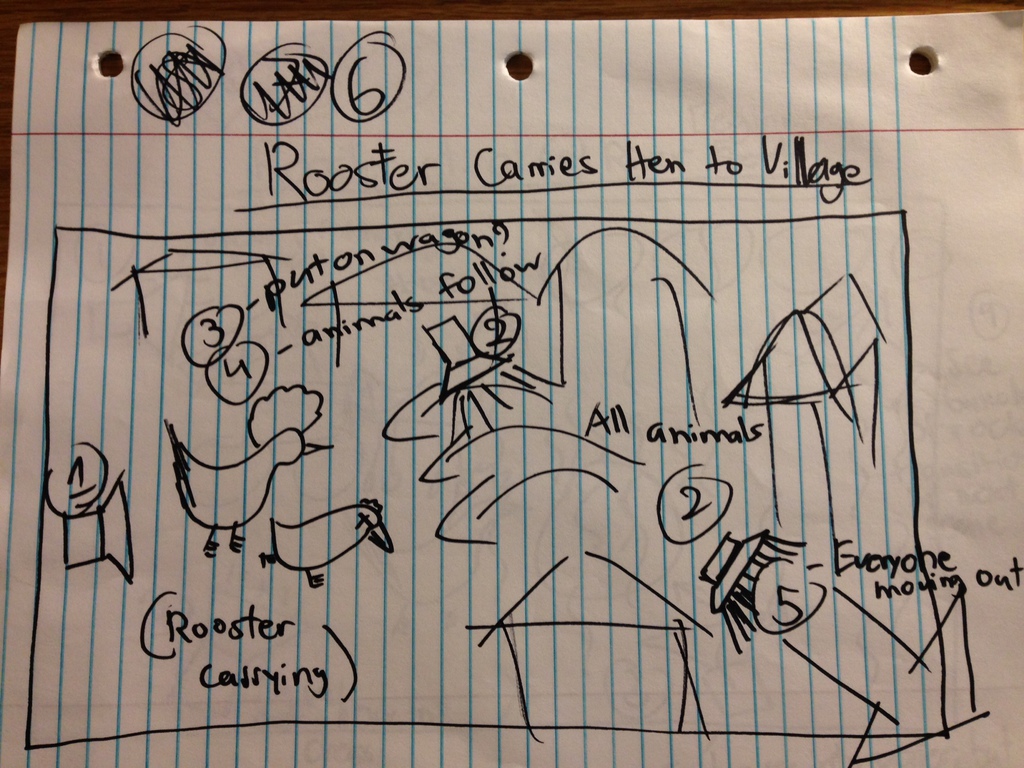 6
Rooster Carries Hen to Village
3 - put on wagon?
4 - animals follow
2
All animals
1
2
5 - Everyone
moving out
(Rooster
carrying)